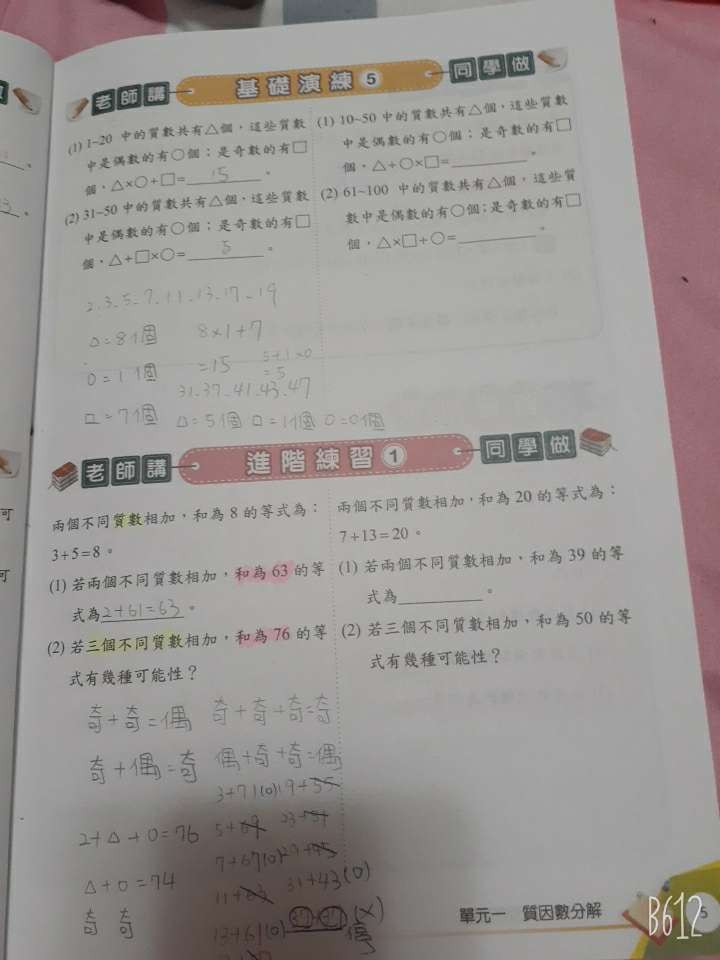 老師講 基礎演練5 同學做
(1) 1~20 中的質數共有△個,這些質數
中是偶數的有○個;是奇數的有□
個,△×○+□=15。
(2) 31~50 中的質數共有△個,這些質數
中是偶數的有○個;是奇數的有□
個,△+□×○=5。
(1) 10~50 中的質數共有△個,這些質數
中是偶數的有○個;是奇數的有□
個,△+○×□=________。
(2) 61~100 中的質數共有△個,這些質
數中是偶數的有○個;是奇數的有□
個,△×□+○=________。
2.3.5.7.11.13.17.19
△=8個 8×1+7
○=1個 =15 5+1×0
=5
31.37.41.43.47
□=7個 △=5個 □=1個 ○=0個
老師講 進階練習1 同學做
兩個不同質數相加,和為 8 的等式為:
3+5=8。
(1) 若兩個不同質數相加,和為 63 的等
式為2+61=63。
(2) 若三個不同質數相加,和為 76 的等
式有幾種可能性?
兩個不同質數相加,和為 20 的等式為:
7+13=20。
(1) 若兩個不同質數相加,和為 39 的等
式為________。
(2) 若三個不同質數相加,和為 50 的等
式有幾種可能性?
奇+奇=偶 奇+奇+奇=奇
奇+偶=奇 偶+奇+奇=偶
3+71(0) 19+55
2+△+○=76 5+69
7+67(0)
△+○=74 11+63 31+43(0)
奇 奇 13+61(0) 37+37(×)
單元一 質因數分解 5
B612